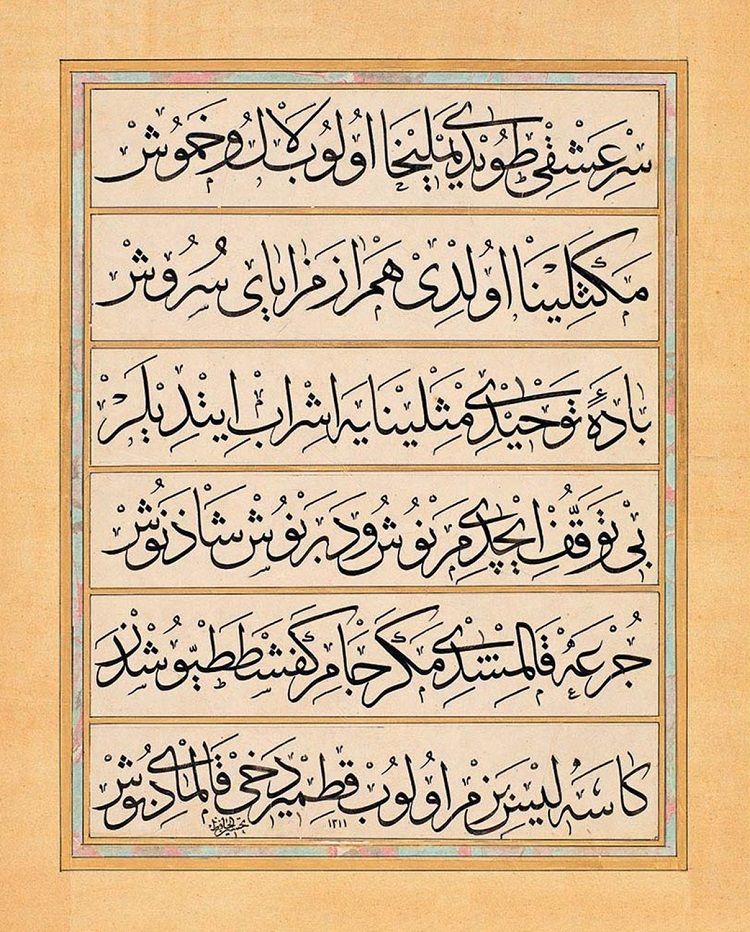 سر عشقى طويدى يمليخا اولوب لال و خموش
مكثلينا اولدى همراز مزاياى سروش
بادۀ توحيدى مثلينايه اشراب ايتديلر
بى توقف ايچدى مرنوش و دبرنوش شاذنوش
جرعه قالمشدى مكر جامر كفشططيوشدن
كاسه ليس بزم اولوب قطمير دخى قالمادى بوش
١٣١١